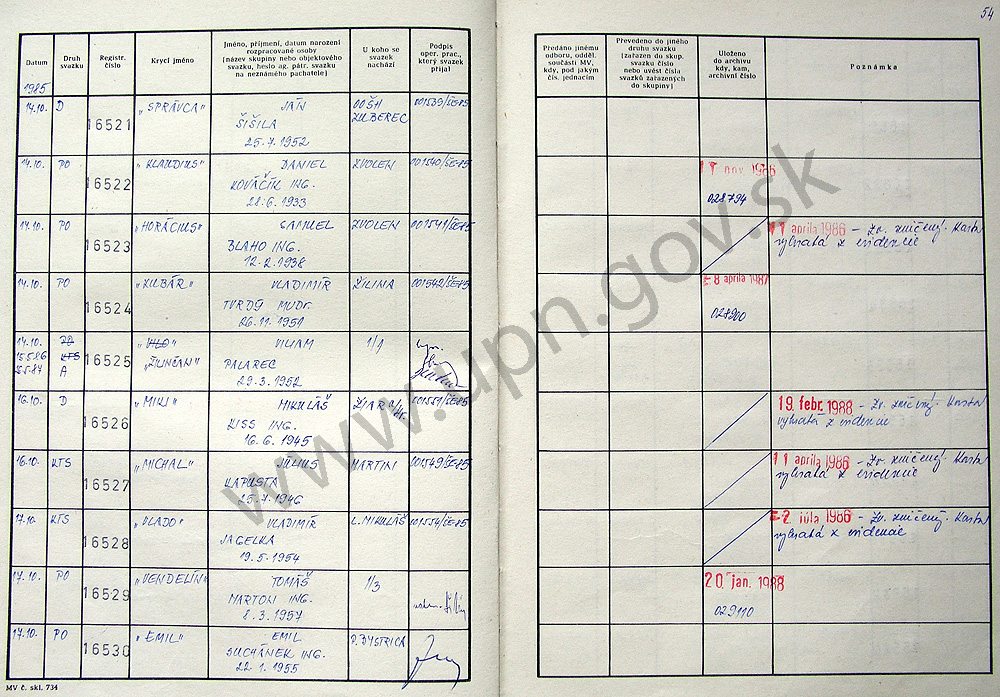 54
Datum
Druh svazku
Registr. číslo
Krycí jméno
Jméno, příjmení, datum narození
rozpracované osoby
(název skupiny nebo objektového
svazku, heslo ag. pátr. svazku
na neznámého pachatele)
U koho se
svazek
nachází
Podpis
oper. prac.,
který svazek
přijal
Předáno jinému
odboru, odděl.
součásti MV,
kdy, pod jakým
čís. jednacím
Převedeno do jiného
druhu svazku
(zařazen do skup.
svazku číslo
nebo uvést čísla
svazků zařazených
do skupiny)
Uloženo
do archivu
kdy, kam,
archivní číslo
Poznámka
1985
14.10. D 16521 „SPRÁVCA" JÁN OOŠH 001539/ŠE-85
ŠIŠILA ZUBEREC
25.7.1952
14.10. PO 16522 „KLAUDIUS" DANIEL ZVOLEN 001540/ŠE-85 11 nov 1986
KOVÁČIK ING. 028794
28.6.1933
14.10. PO 16523 „HORÁCIUS" SAMUEL ZVOLEN 001541/ŠE-85 11 apríla 1986 - Zv. zničený. Karta
BLAHO ING. vybratá z evidencie
12.2.1938
14.10. PO 16524 „ZUBÁR" VLADIMÍR ŽILINA 001542/ŠE-85 -8 apríla 1987
TVRDÝ MUDr. 027900
26.11.1951
14.10. 16525 „VILO" VILIAM 1/1
15.5.86 KTS „ŽILINČAN" PALAREC
A 29.3.1952
16.10. D 16526 „MIKI" MIKULÁŠ ŽIAR 001551/ŠE-85 19. febr. 1988 - Zv. zničený. Karta
KISS ING. vybratá z evidencie
16.6.1945
16.10. KTS 16527 „MICHAL" JÚLIUS MARTIN 001549/ŠE-85 11 apríla 1986 - Zv. zničený. Karta
KAPUSTA vybratá z evidencie
25.7.1946
17.10. KTS 16528 „VLADO" VLADIMÍR L. MIKULÁŠ 001554/ŠE-85 -2 júla 1986 - Zv. zničený. Karta
JAGELKA vybratá z evidencie
19.5.1954
17.10. PO 16529 „VENDELÍN" TOMÁŠ 1/3 20 jan. 1988
MARTON ING. 029110
8.3.1957
17.10. PO 16530 „EMIL" EMIL B. BYSTRICA
SUCHÁNEK ING.
22.1.1955
MV č. skl. 734
www.upn.gov.sk